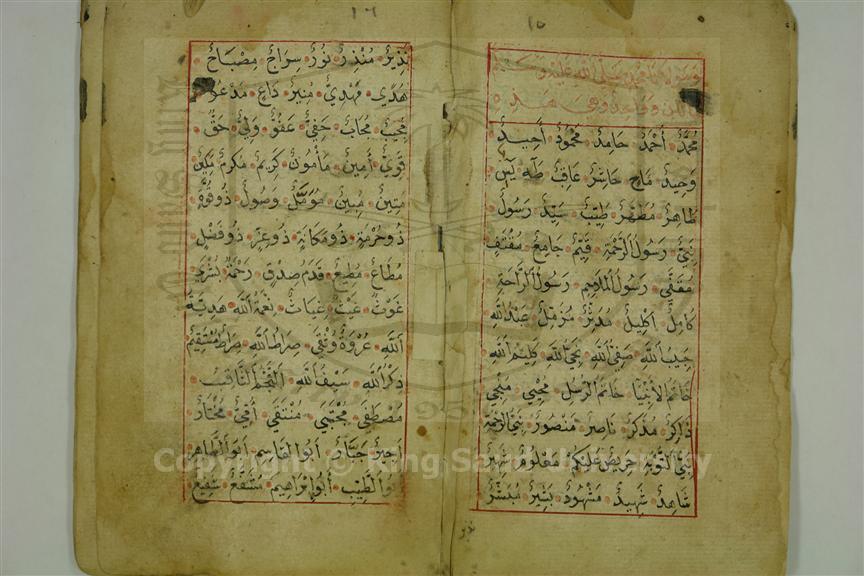 ١٥
صلى الله عليه و
محمد أحمد حامد محمود أحيد
وحيد ماح حاشر عاقب طه يس
طاهر مطهر طيب سيد رسول
نبي رسول الرحمة قيم جامع مقتف
مقفى رسول الملاحم رسول الراحة
كامل اكليل مدثر مزمل عبد الله
حبيب الله صفي الله نجي الله كليم الله
خاتم الأنبيا خاتم الرسل محيي منجي
مذكر ناصر منصور نبي الرحمة
نبي التوبة حريص عليكم معلوم شهير
شاهد شهيد مشهود بشير مبشر
نذير
١٦
نذير منذر نور سراج مصباح
هدى مهدي منير داع مدعو
مجيب مجاب حفي عفو ولي حق
قوي أمين مأمون كريم مكرم مكين
متين مبين مؤمل وصول ذو قوة
ذو حرمة ذو مكانة ذو عز ذو فضل
مطاع مطيع قدم صدق رحمة بشرى
غوث غيث غياث نعمة الله هدية
الله عروة وثقى صراط الله صراط مستقيم
ذكر الله سيف الله النجم الثاقب
مصطفى مجتبى منتقى أمي مختار
اجير جبار ابو القاسم ابو الطاهر
ابو الطيب ابو إبراهيم مشفع شفيع
Copyright © King Saud University